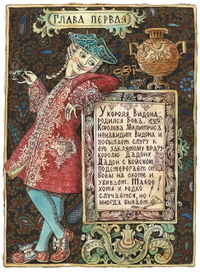 ГЛАВА ПЕРВАЯ
У КОРОЛЯ ВИДОНА
РОДИЛСЯ БОВА.
КОРОЛЕВА МИЛИТРИСА
НЕНАВИДИТ ВИДОНА И
ПОСЫЛАЕТ СЛУГУ К
ЕГО ЗАКЛЯТОМУ ВРАГУ
КОРОЛЮ ДАДОНУ.
ДАДОН С ВОЙСКОМ
ПОДСТЕРЕГАЕТ ОТЦА
БОВЫ НА ОХОТЕ И
УБИВАЕТ. ТАКОЕ
ХОТЯ И РЕДКО
СЛУЧАЕТСЯ, НО
ИНОГДА БЫВАЕТ.